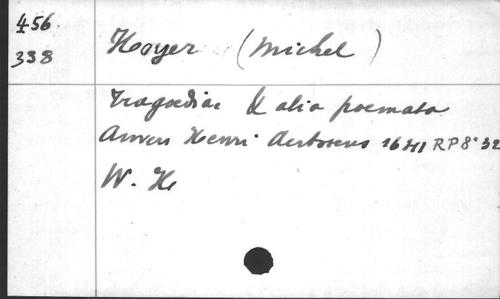 456
338
Hoyer (Michel)
Tragoediae & alia poemata
Anvers Henri Aertssens 1641 RP 8° 32
W. H